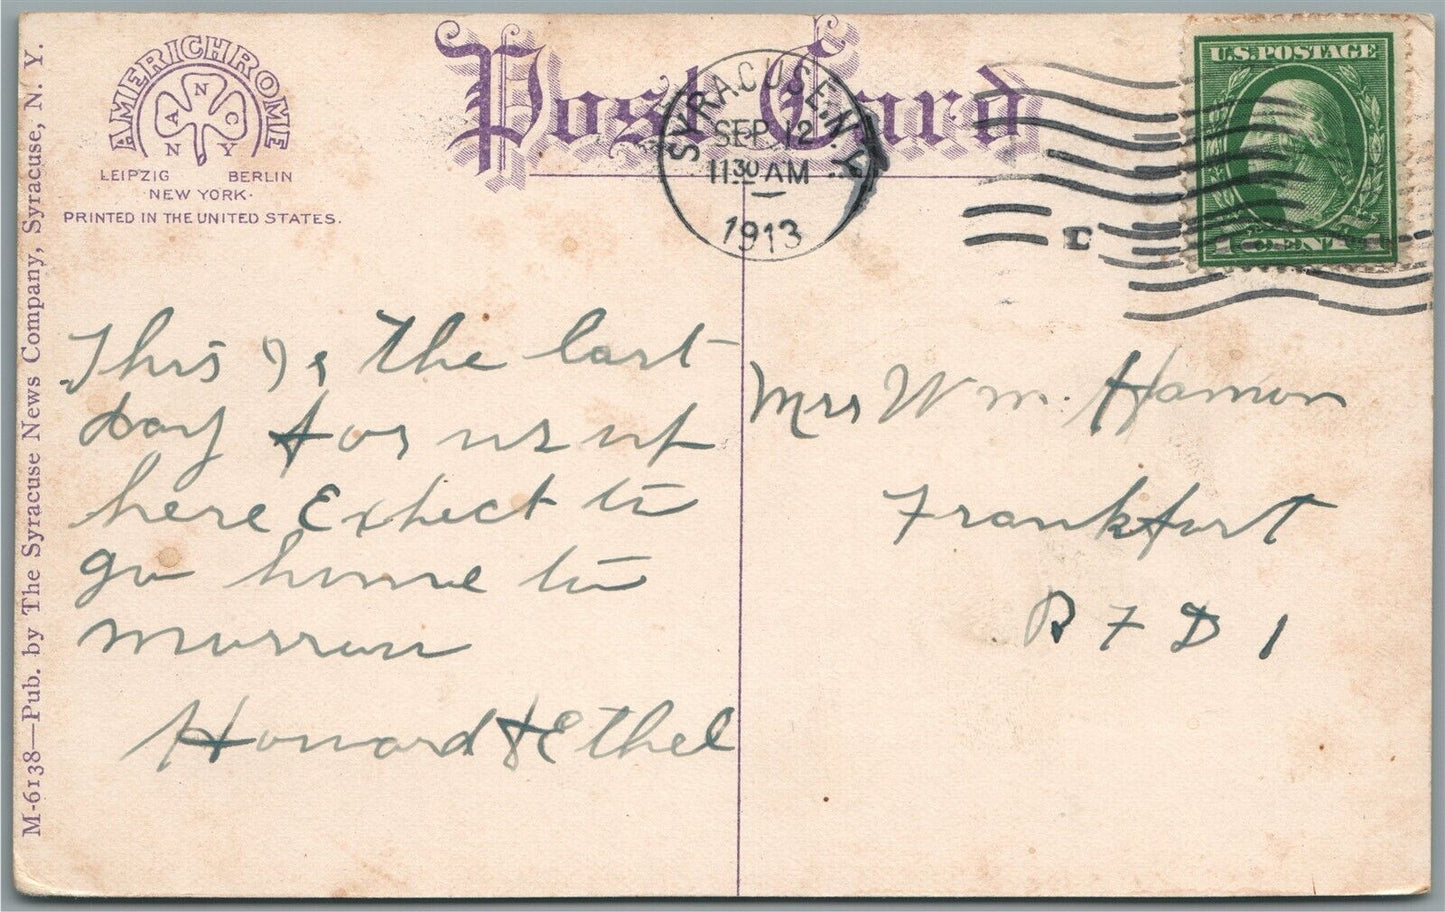 AMERICHROME
A N C
N Y
LEIPZIG BERLIN
NEW YORK.
PRINTED IN THE UNITED STATES.
Post Card
SYRACUSE, N.Y.
SEP 12
11 30 AM
1913
U.S. POSTAGE
1 CENT
M-6138—Pub. by The Syracuse News Company, Syracuse, N. Y.
This Is the last
day for us up
here Expect to
go home to
morrow
Howard & Ethel
Mrs Wm. Hamon
Frankfort
R F D 1